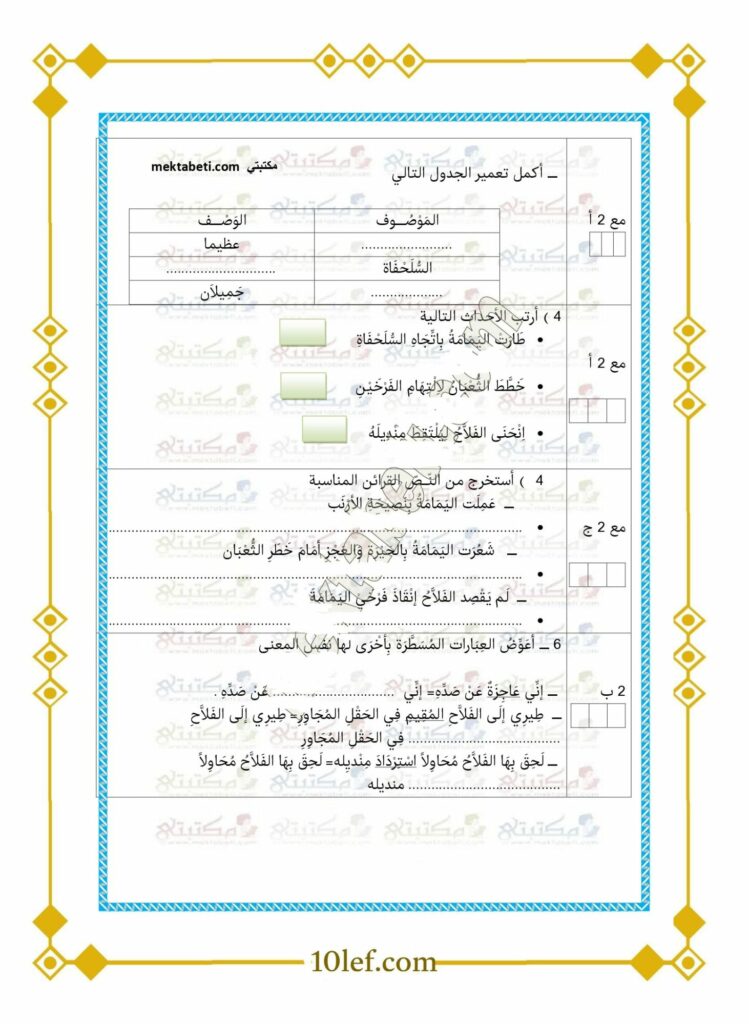 مكتبتي mektabeti.com
ـ أكمل تعمير الجدول التالي
مع 2 أ
المَوْصُوف الوَصْف
........................ عظيما
السُّلَحْفَاة ............................
................... جَمِيلاَن
4 ) أرتب الأحداث التالية
• طَارَت اليَمَامَةُ بِاتِّجَاهِ السُّلَحْفَاةِ
مع 2 أ
• خَطَّطَ الثُّعْبَانُ لِالْتِهَامِ الفَرْخَيْنِ
• اِنْحَنَى الفَلاَّحُ لِيَلْتَقِطَ مِنْدِيلَهُ
4 ) أستخرج من النّصّ القرائن المناسبة
ـ عَمِلَت اليَمَامَةُ بِنَصِيحَةِ الأَرْنَب
مع 2 ج
• ........................................................
ـ شَعُرَت اليَمَامَةُ بِالحَيْرَةِ وَالعَجْزِ أَمَامَ خَطَرِ الثُّعْبَان
• ........................................................
ـ لَم يَقْصِد الفَلاَّحُ إنْقَاذَ فَرْخَيْ اليَمَامَة
• ........................................................
6 ـ أُعَوِّضُ العِبَارات المُسَطَّرَة بِأُخْرَى لها نَفْس المعنى
2 ب
ـ إنِّي عَاجِزَةٌ عَنْ صَدِّهِ= إنِّي ............................عَنْ صَدِّهِ .
ـ طِيرِي إلَى الفَلاَّحِ المُقِيمِ فِي الحَقْلِ المُجَاوِرِ= طِيرِي إلَى الفَلاَّحِ
.................................. فِي الحَقْلِ المُجَاوِرِ
ـ لَحِقَ بِهَا الفَلاَّحُ مُحَاوِلاً اسْتِرْدَادَ مِنْدِيلِه= لَحِقَ بِهَا الفَلاَّحُ مُحَاوِلاً
.................................. منديله
10lef.com